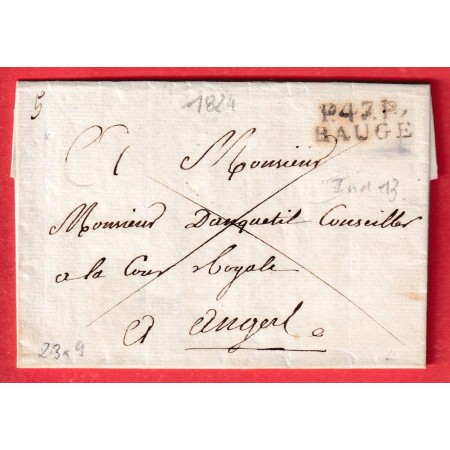 1824
5
P.47.P.
BAUGÉ
Monsieur
Ind 13
Monsieur Danquetil Conseiller
a la Cour Royale
A angers
23 x 9